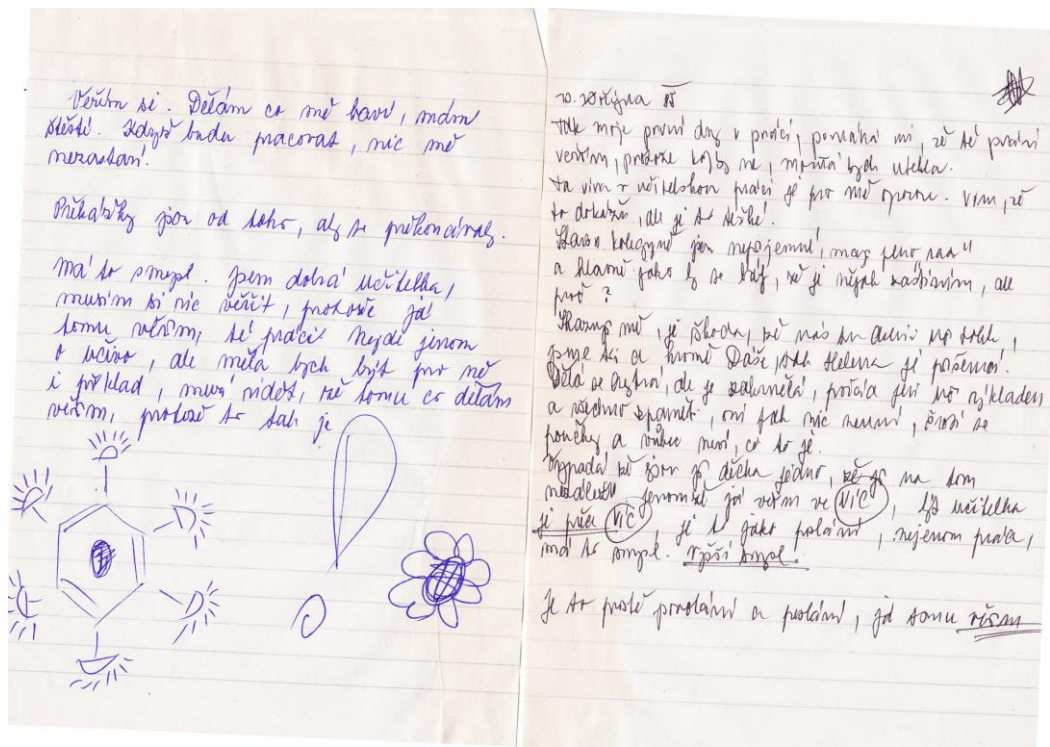 Věřím si. Dělám co mě baví, mám
štěstí. Když budu pracovat, nic mě
nezastaví.
Překážky jsou od toho, aby se překonávaly.
Má to smysl. Jsem dobrá učitelka,
musím si víc věřit, protože já
tomu věřím, té práci! Nejde jenom
o učivo, ale měla bych být pro ně
i příklad, musí vidět, že tomu co dělám
věřím, protože to tak je
10. září
Tak moje první dny v práci, pomáhá mi, že té práci
věřím, protože kdyby ne, možná bych utekla.
učitelskou práci je pro mě oporou. Vím, že
to dokážu, ale je to těžké.
kolegyně jsou nepříjemné, mají
a hlavně jako by se bály, že je nějak zastíním, ale
proč?
mě, je škoda, že nás tu není
a kromě Dáši, Helena je
Dělá se chytrá, ale je zahleděná, pořád jen výkladem
a všechno zpaměti, oni pak nic neumí, šrotí se
poučky a vůbec neví, co to je.
Vypadá že jsou jí děcka jedno, že jí na tom
nezáleží jenomže já věřím ve VÍC, být učitelka
je přece VÍC, je to jako poslání, nejenom práce,
má to smysl. Vyšší smysl.
Je to prostě povolání a poslání, já tomu věřím